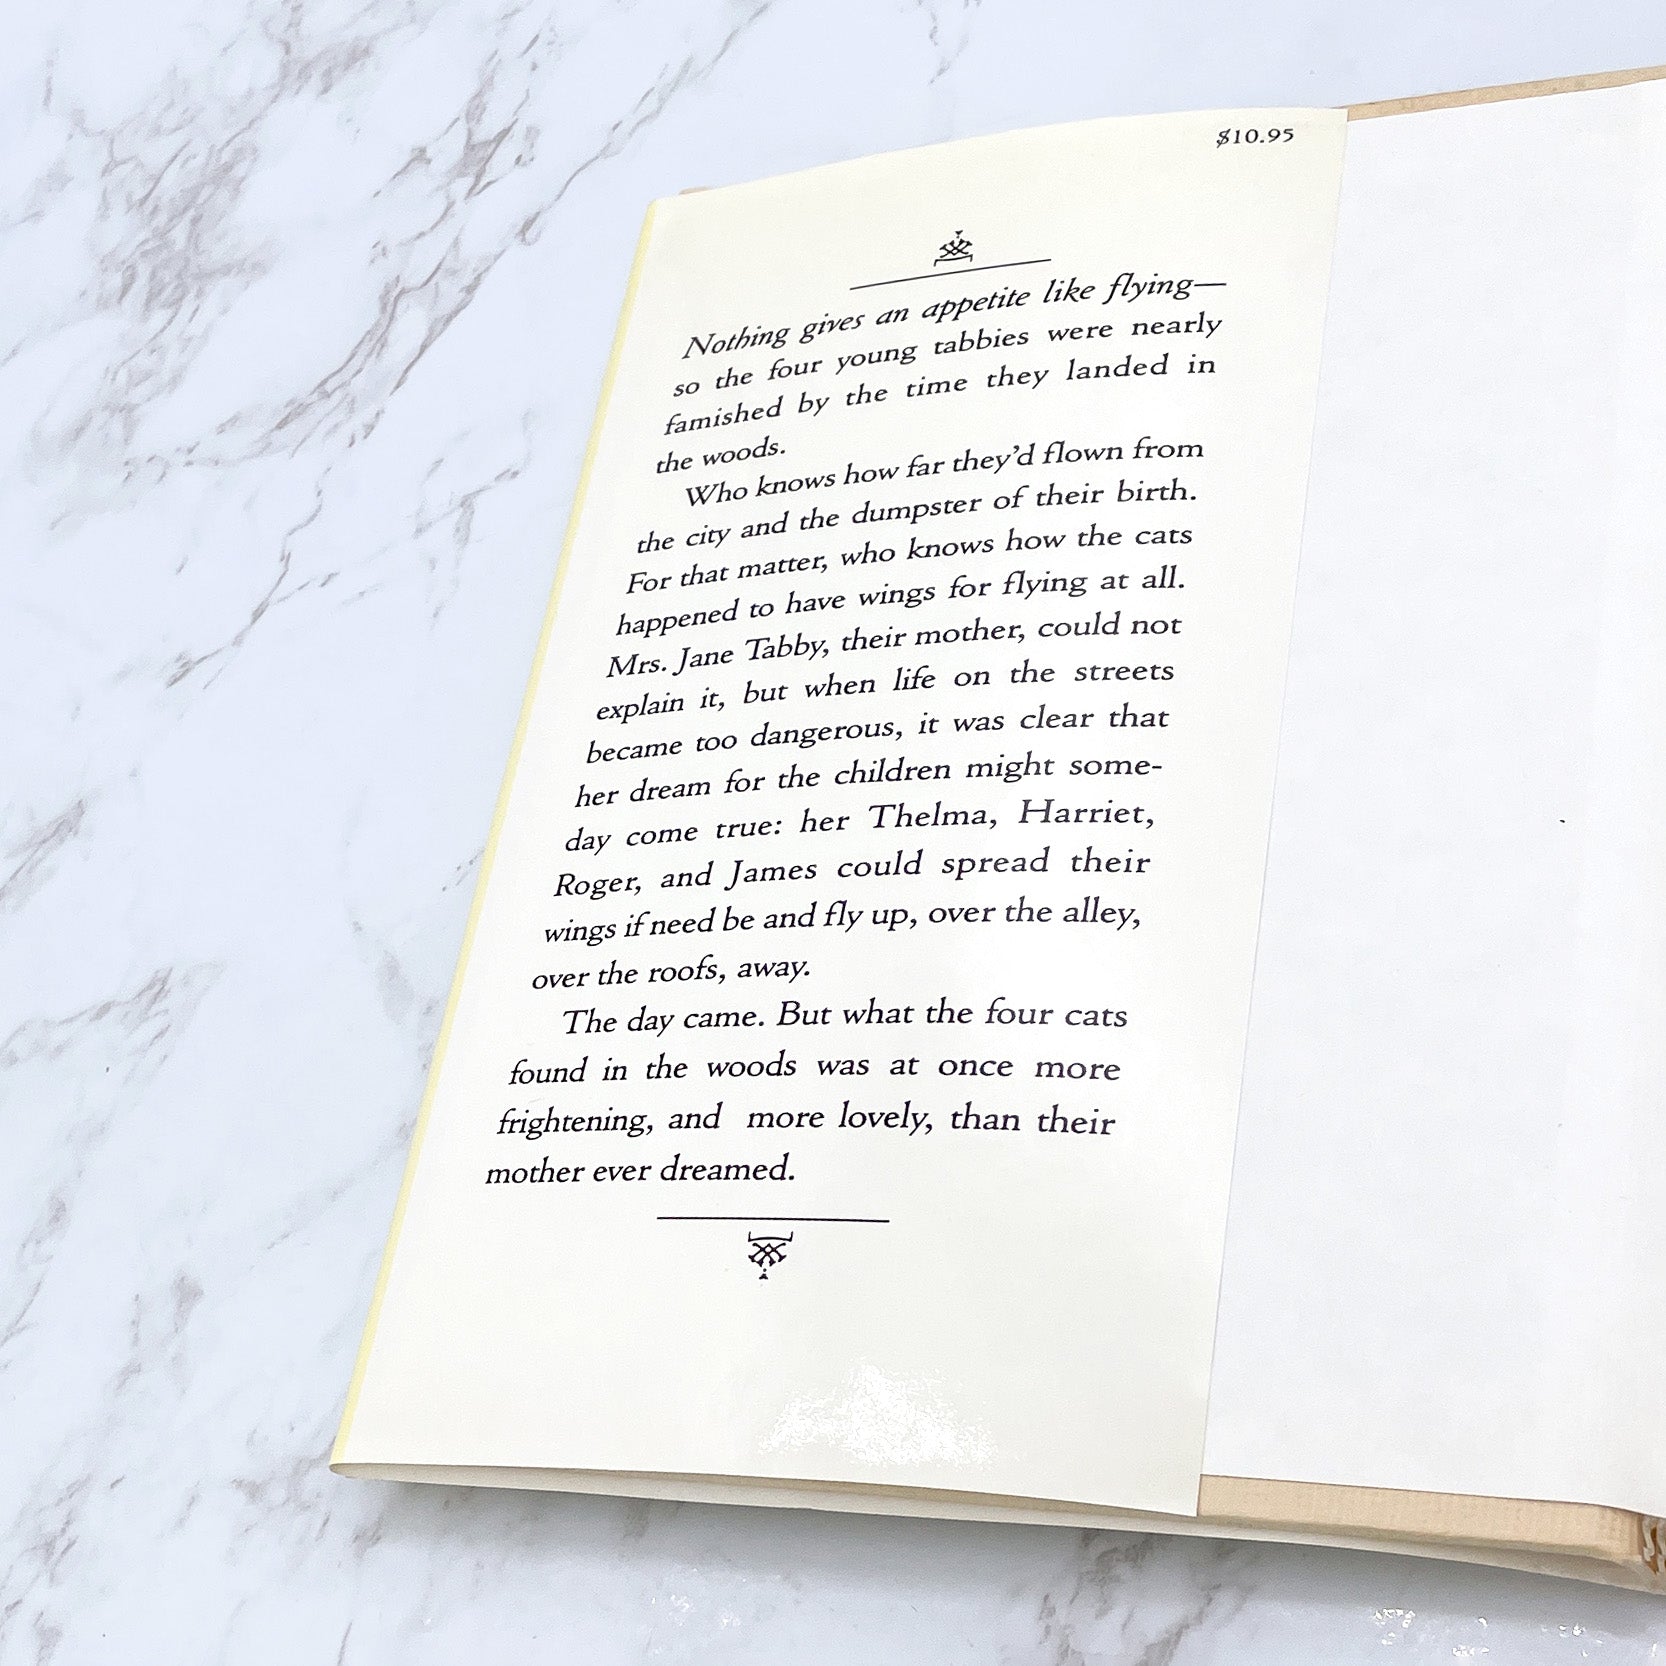 $10.95
Nothing gives an appetite like flying—
so the four young tabbies were nearly
famished by the time they landed in
the woods.
Who knows how far they’d flown from
the city and the dumpster of their birth.
For that matter, who knows how the cats
happened to have wings for flying at all.
Mrs. Jane Tabby, their mother, could not
explain it, but when life on the streets
became too dangerous, it was clear that
her dream for the children might some-
day come true: her Thelma, Harriet,
Roger, and James could spread their
wings if need be and fly up, over the alley,
over the roofs, away.
The day came. But what the four cats
found in the woods was at once more
frightening, and more lovely, than their
mother ever dreamed.